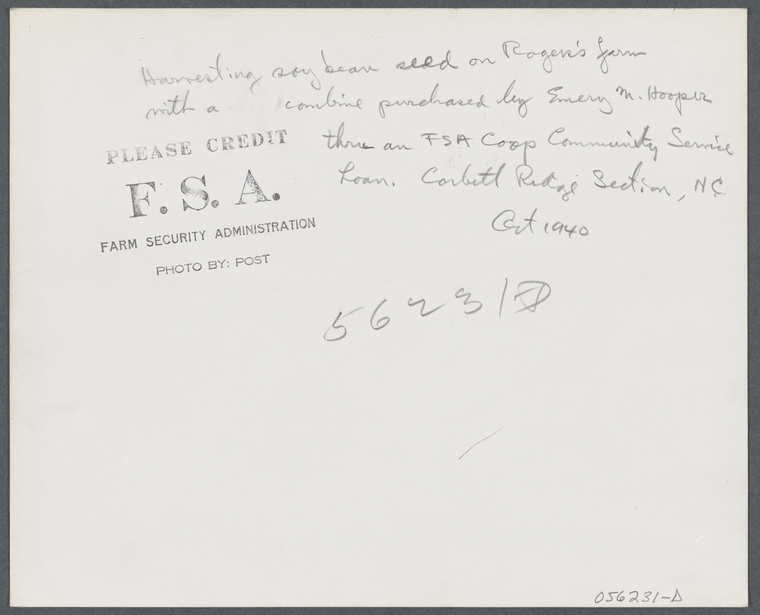 Harvesting soy bean seed on Rogers's farm
with a combine purchased by Emery M. Hooper
thru an FSA Coop Community Service
Loan. Corbett Ridge Section, NC
Oct 1940
PLEASE CREDIT
F. S. A.
FARM SECURITY ADMINISTRATION
PHOTO BY: POST
56231 D
056231-D